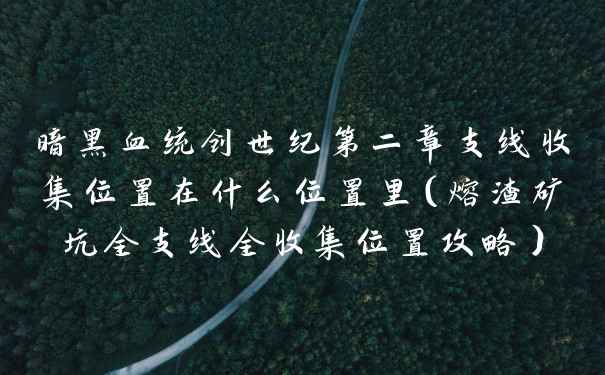 暗黑血统创世纪第二章支线收
集位置在什么位置里(熔渣矿
坑全支线全收集位置攻略)